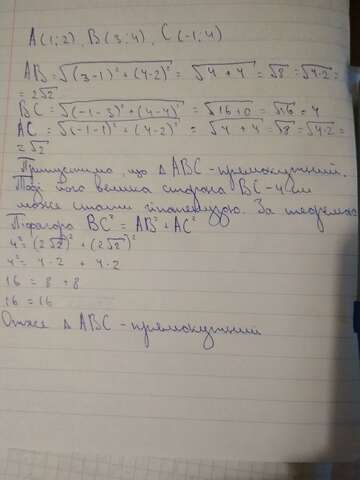 A(1;2), B(3;4), C(-1;4)
AB = √(3-1)² + (4-2)² = √4+4 = √8 = √4·2 =
= 2√2
BC = √(-1-3)² + (4-4)² = √16+0 = √16 = 4
AC = √(-1-1)² + (4-2)² = √4+4 = √8 = √4·2 =
= 2√2
Припустимо, що △ABC - прямокутний.
Тоді його велика сторона BC - 4 см
може стати гіпотенузою. За теоремою
Піфагора BC² = AB² + AC²
4² = (2√2)² + (2√2)²
4² = 4·2 + 4·2
16 = 8 + 8
16 = 16
Отже △ABC - прямокутний